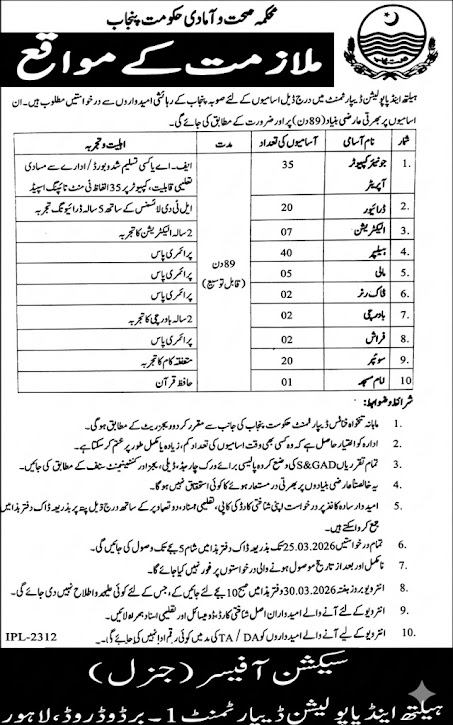 محکمہ صحت و آبادی حکومت پنجاب
ملازمت کے مواقع
ہیلتھ اینڈ پاپولیشن ڈیپارٹمنٹ میں درج ذیل اسامیوں کے لئے صوبہ پنجاب کے رہائشی امیدواروں سے درخواستیں مطلوب ہیں۔ ان
اسامیوں پر بھرتی عارضی بنیاد (89 دن) پر اور ضرورت کے مطابق کی جائے گی۔
شمار نام آسامی آسامیوں کی تعداد مدت اہلیت و تجربہ
1. جونیئر کمپیوٹر آپریٹر 35 ایف۔اے یا کسی تسلیم شدہ بورڈ/ادارے سے مساوی
تعلیمی قابلیت، کمپیوٹر پر 35 الفاظ فی منٹ ٹائپنگ اسپیڈ
2. ڈرائیور 20 ایل ٹی وی لائسنس کے ساتھ 5 سالہ ڈرائیونگ تجربہ
3. الیکٹریشن 07 2 سالہ الیکٹریشن کا تجربہ
4. ہیلپر 40 پرائمری پاس
5. مالی 05 89 دن (قابل توسیع) پرائمری پاس
6. ڈاک رنر 02 پرائمری پاس
7. باورچی 02 2 سالہ باورچی کا تجربہ
8. فراش 02 پرائمری پاس
9. سوئپر 20 متعلقہ کام کا تجربہ
10. امام مسجد 01 حافظ قرآن
شرائط و ضوابط:
1. ماہانہ تنخواہ فنانس ڈیپارٹمنٹ حکومت پنجاب کی جانب سے مقرر کردہ ویجز ریٹ کے مطابق ہو گی۔
2. ادارہ کو اختیار حاصل ہے کہ وہ کسی بھی وقت اسامیوں کی تعداد کم، زیادہ یا مکمل طور پر ختم کر سکتا ہے۔
3. تمام تقرریاں S&GAD کی وضع کردہ پالیسی برائے ورک چارجڈ، ڈیلی ویجز اور کنٹیجینٹ سٹاف کے مطابق کی جائیں۔
4. یہ خالصتاً عارضی بنیادوں پر بھرتی مستعار ہونے کا کوئی استحقاق نہیں ہوگا۔
5. امیدوار سادہ کاغذ پر درخواست اپنی شناختی کارڈ کی کاپی، تعلیمی اسناد، دو تصاویر کے ساتھ درج ذیل پتہ پر بذریعہ ڈاک دفتر ہذا میں
جمع کروا سکتے ہیں۔
6. تمام درخواستیں 25.03.2026 تک بذریعہ ڈاک دفتر ہذا میں شام 5 بجے تک وصول کی جائیں گی۔
7. نامکمل اور بعد از تاریخ موصول ہونے والی درخواستوں پر غور نہیں کیا جائے گا۔
8. انٹرویو بروز ہفتہ 30.03.2026 دفتر ہذا میں صبح 10 بجے لئے جائیں گے، جس کے لئے کوئی علیحدہ اطلاع نہیں دی جائے گی۔
9. انٹرویو کے لئے آنے والے امیدواران اصل شناختی کارڈ، ڈومیسائل اور تعلیمی اسناد ہمراہ لائیں۔
10. انٹرویو کے لیے آنے والے امیدواروں کو TA / DA کی مد میں کوئی رقم ادا نہیں کی جائے گی۔
IPL-2312
سیکشن آفیسر (جنرل)
ہیلتھ اینڈ پاپولیشن ڈیپارٹمنٹ 1 - برڈوڈ روڈ، لاہور